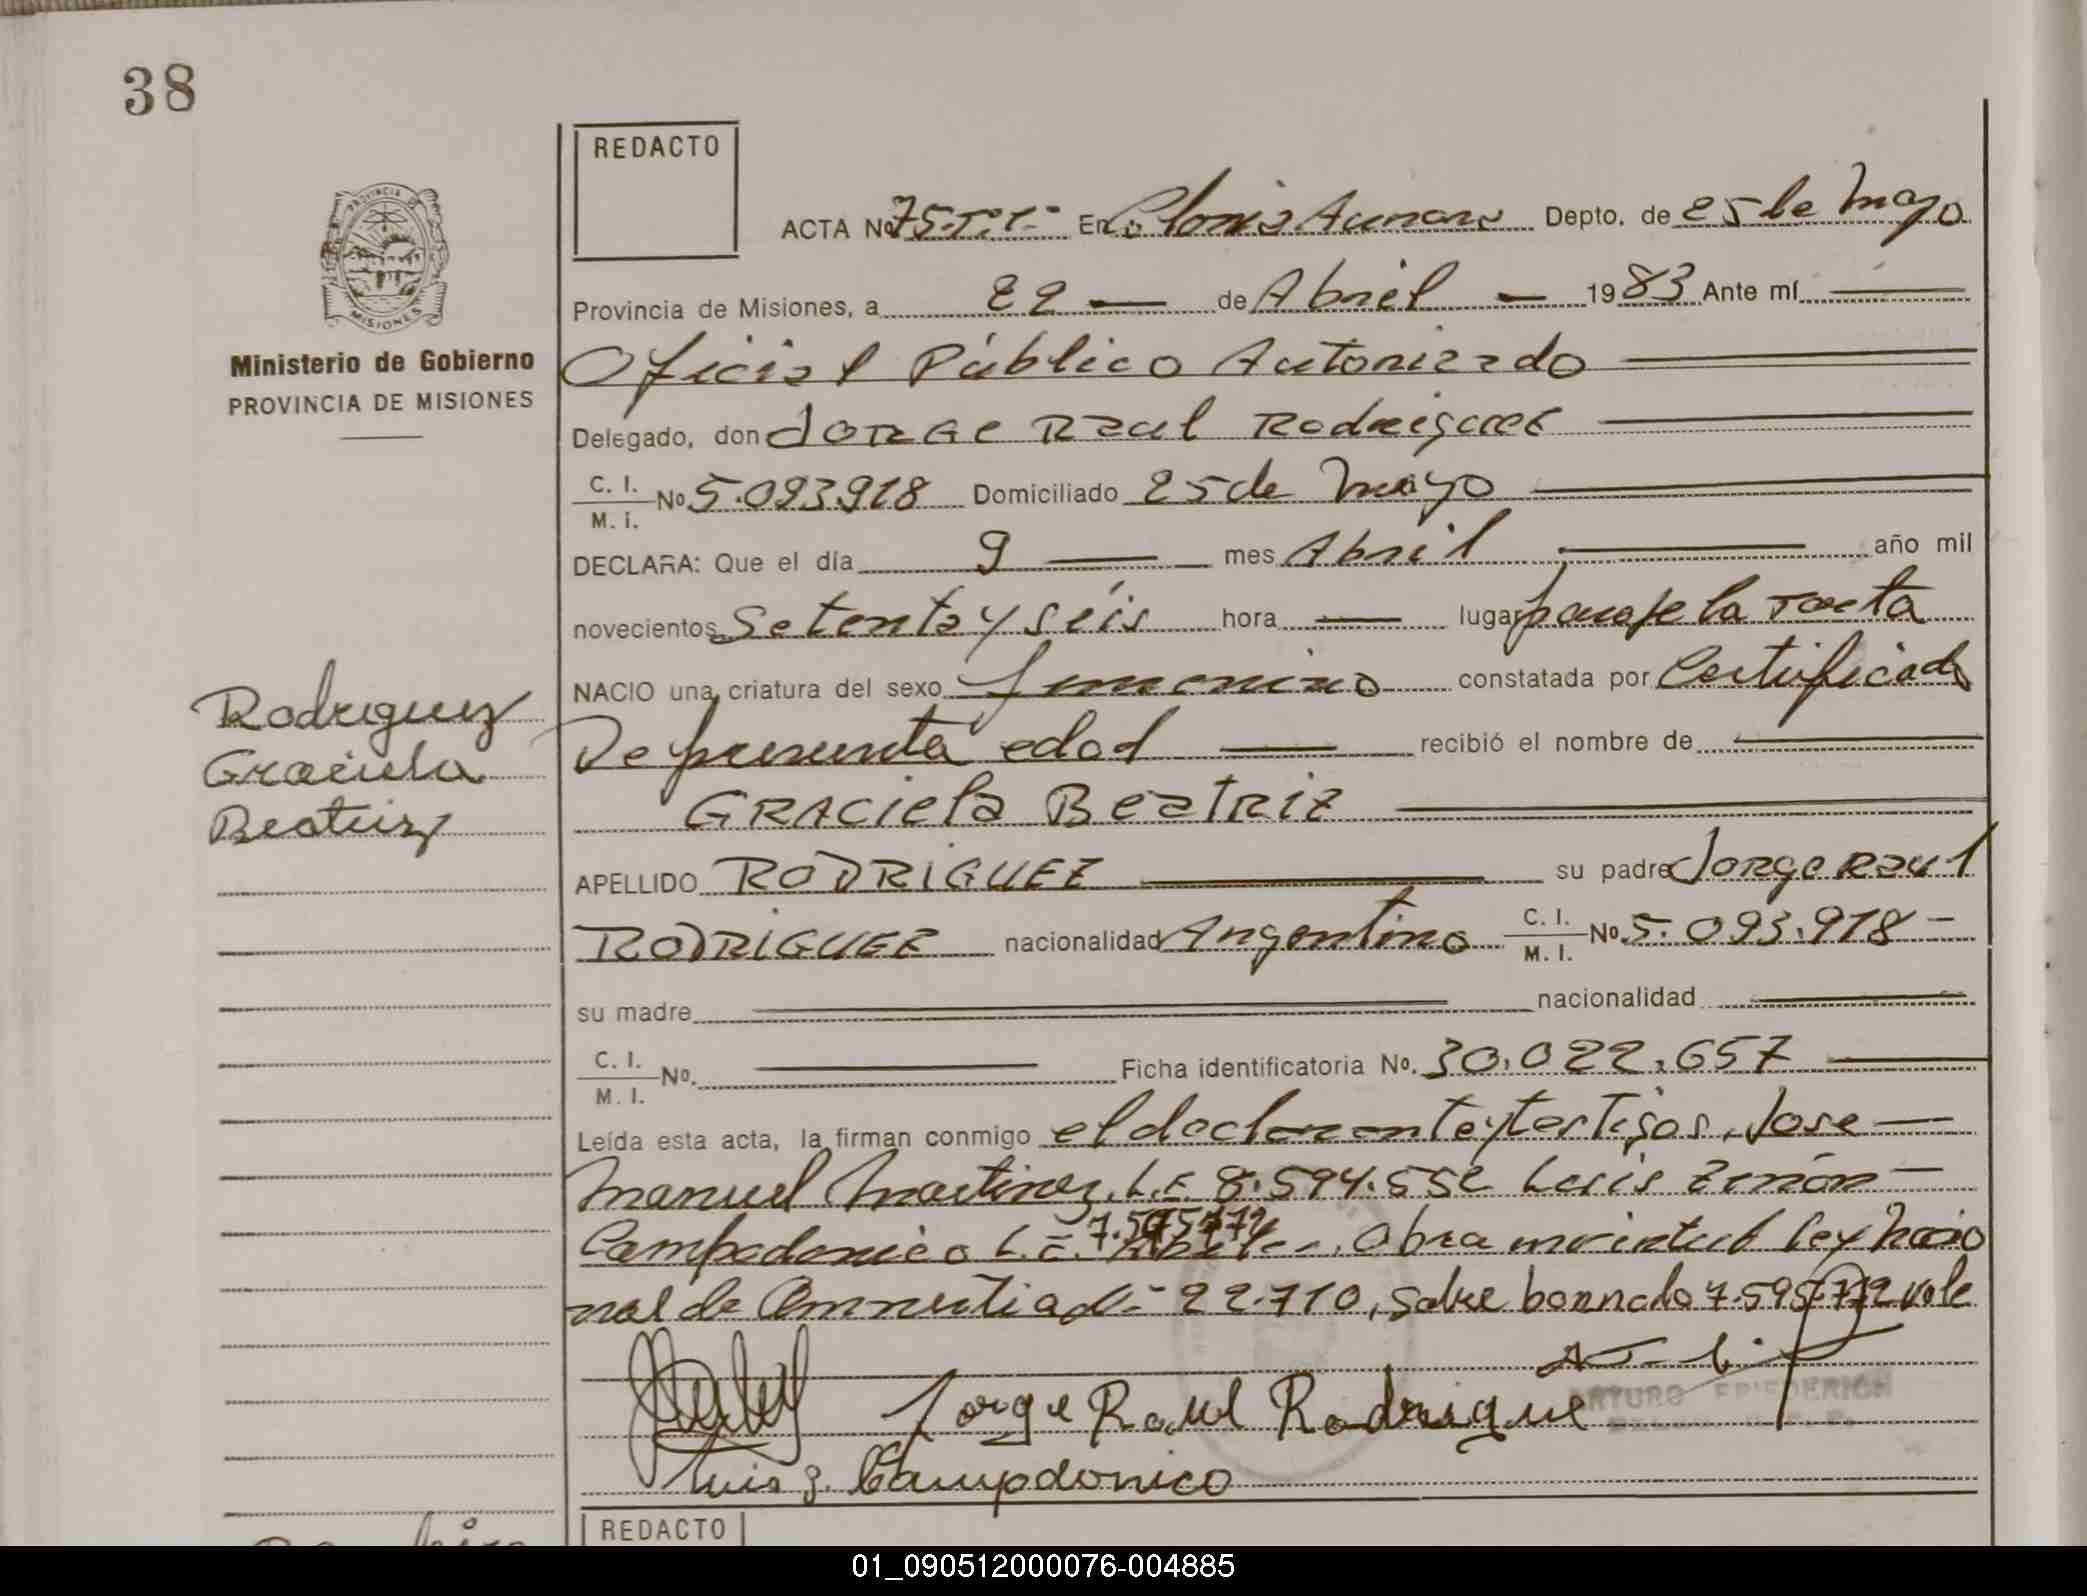 38
REDACTO
ACTA Nº 75.T.I.- En Colonia Aurora Depto. de 25 de Mayo
Provincia de Misiones, a 22 — de Abril — 1983 Ante mí
Ministerio de Gobierno
PROVINCIA DE MISIONES
PROVINCIA
MISIONES
Oficial Público Autorizado
Delegado, don Jorge Raul Rodriguez
C. I.
M. I. Nº 5.093.918 Domiciliado 25 de Mayo
DECLARA: Que el día 9 — mes Abril — año mil
novecientos Setenta y séis hora — lugar paraje la
NACIO una criatura del sexo femenino constatada por Certificado
De presunta edad — recibió el nombre de
GRACIELA BEATRIZ
Rodriguez
Graciela
Beatriz
APELLIDO RODRIGUEZ — su padre Jorge Raul
RODRIGUEZ nacionalidad Argentino C. I.
M. I. Nº 5.093.918 -
su madre nacionalidad
C. I.
M. I. Nº. Ficha identificatoria Nº. 30.022.657
Leída esta acta, la firman conmigo el declarante y testigos, Jose —
Manuel Martinez, L.E. 8.594.552 Luis Zenón —
Campodonico L.E. 7.595.772 Obra mérito ley Nacio
nal de Amnistia de - 22.710, sobre borrado 7.595.772 vale
Jorge Raul Rodrigue
ARTURO FRIEDERICH
Luis Z. Campodonico
REDACTO
01_090512000076-004885